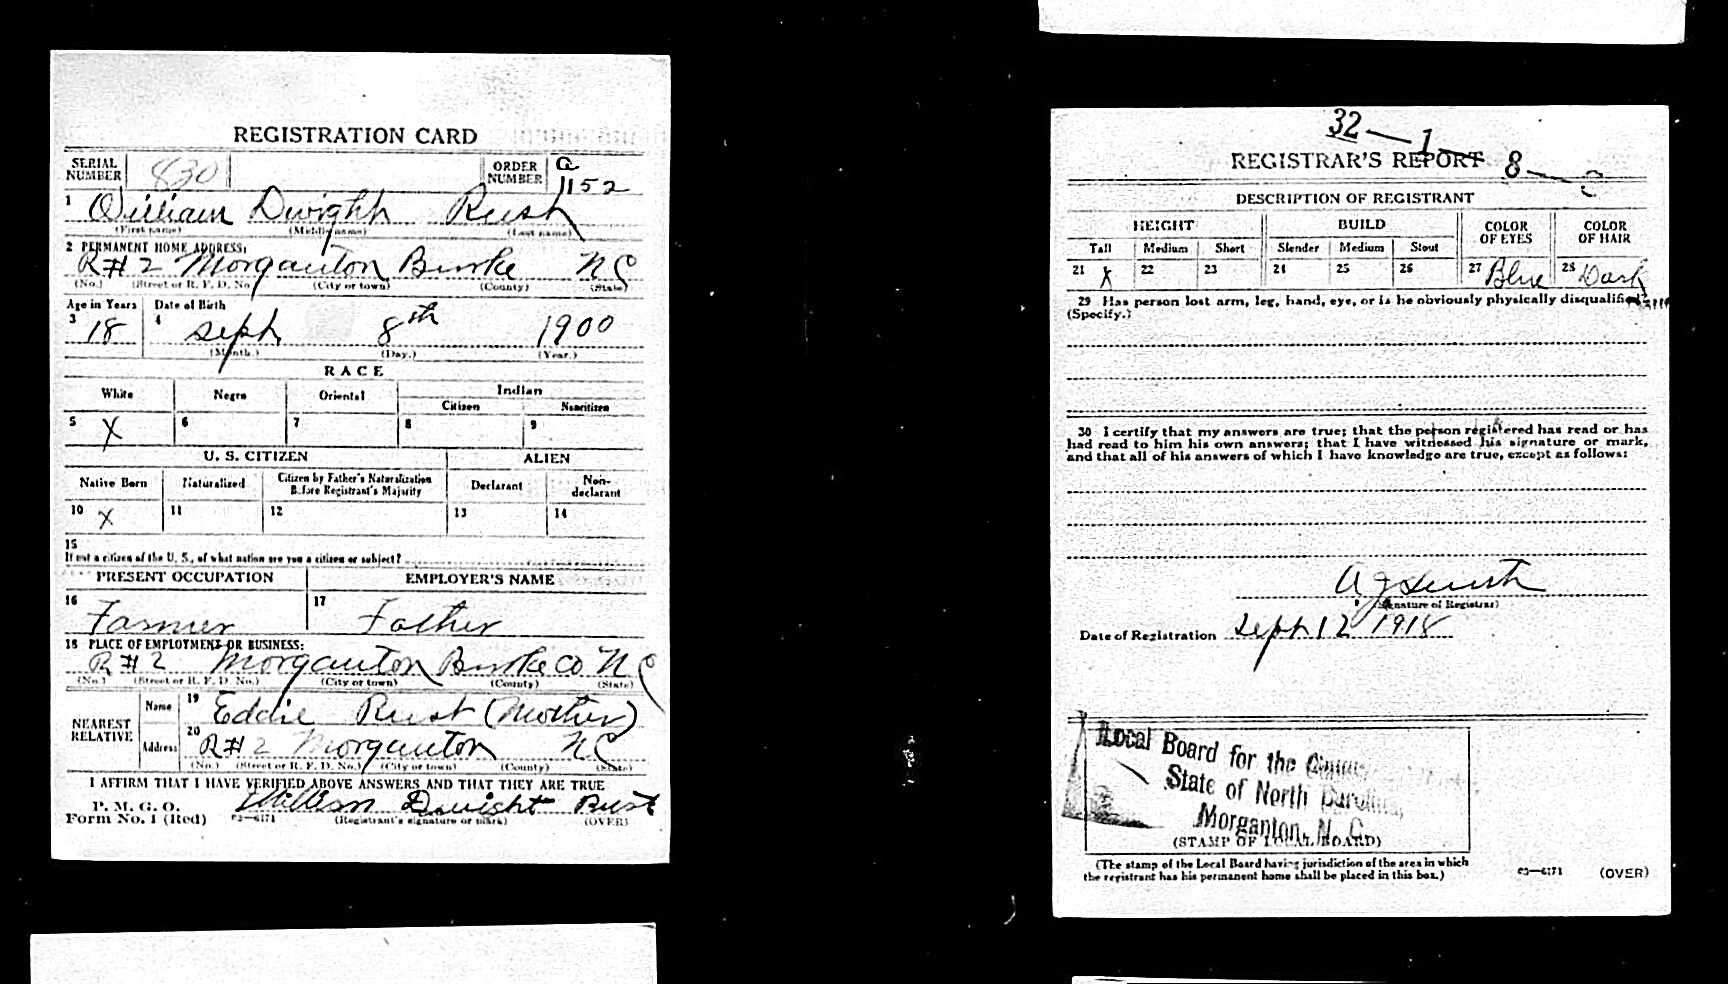 REGISTRATION CARD
SERIAL NUMBER 830 ORDER NUMBER a 1152
1 William Dwight Rust
(First name) (Middle name) (Last name)
2 PERMANENT HOME ADDRESS:
R#2 Morganton Burke N C
(No.) (Street or R. F. D. No.) (City or town) (County) (State)
Age in Years Date of Birth
3 18 4 Sept 8th 1900
(Month.) (Day.) (Year.)
RACE
White Negro Oriental Indian
Citizen Noncitizen
5 X 6 7 8 9
U. S. CITIZEN ALIEN
Native Born Naturalized Citizen by Father's Naturalization Before Registrant's Majority Declarant Non-declarant
10 X 11 12 13 14
15
If not a citizen of the U. S., of what nation are you a citizen or subject?
PRESENT OCCUPATION EMPLOYER'S NAME
16 Farmer 17 Father
18 PLACE OF EMPLOYMENT OR BUSINESS:
R#2 Morganton Burke Co N C
(No.) (Street or R. F. D. No.) (City or town) (County) (State)
NEAREST RELATIVE
Name 19 Eddie Rust (Mother)
Address 20 R#2 Morganton N C
(No.) (Street or R. F. D. No.) (City or town) (County) (State)
I AFFIRM THAT I HAVE VERIFIED ABOVE ANSWERS AND THAT THEY ARE TRUE
P. M. G. O.
Form No. 1 (Red) 03—6171 William Dwight Rust
(Registrant's signature or mark) (OVER)
32—1—8—C
REGISTRAR'S REPORT
DESCRIPTION OF REGISTRANT
HEIGHT BUILD COLOR OF EYES COLOR OF HAIR
Tall Medium Short Slender Medium Stout
21 X 22 23 24 25 26 27 Blue 28 Dark
29 Has person lost arm, leg, hand, eye, or is he obviously physically disqualified?
(Specify.)
30 I certify that my answers are true; that the person registered has read or has
had read to him his own answers; that I have witnessed his signature or mark,
and that all of his answers of which I have knowledge are true, except as follows:
(Signature of Registrar)
Date of Registration Sept 12 1918
Local Board for the
State of North Carolina,
Morganton, N. C.
(STAMP OF LOCAL BOARD)
(The stamp of the Local Board having jurisdiction of the area in which
the registrant has his permanent home shall be placed in this box.)
03—6171 (OVER)